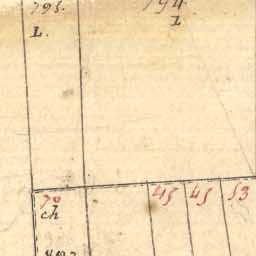 795.
794
L.
L
70
45
45
53
ch